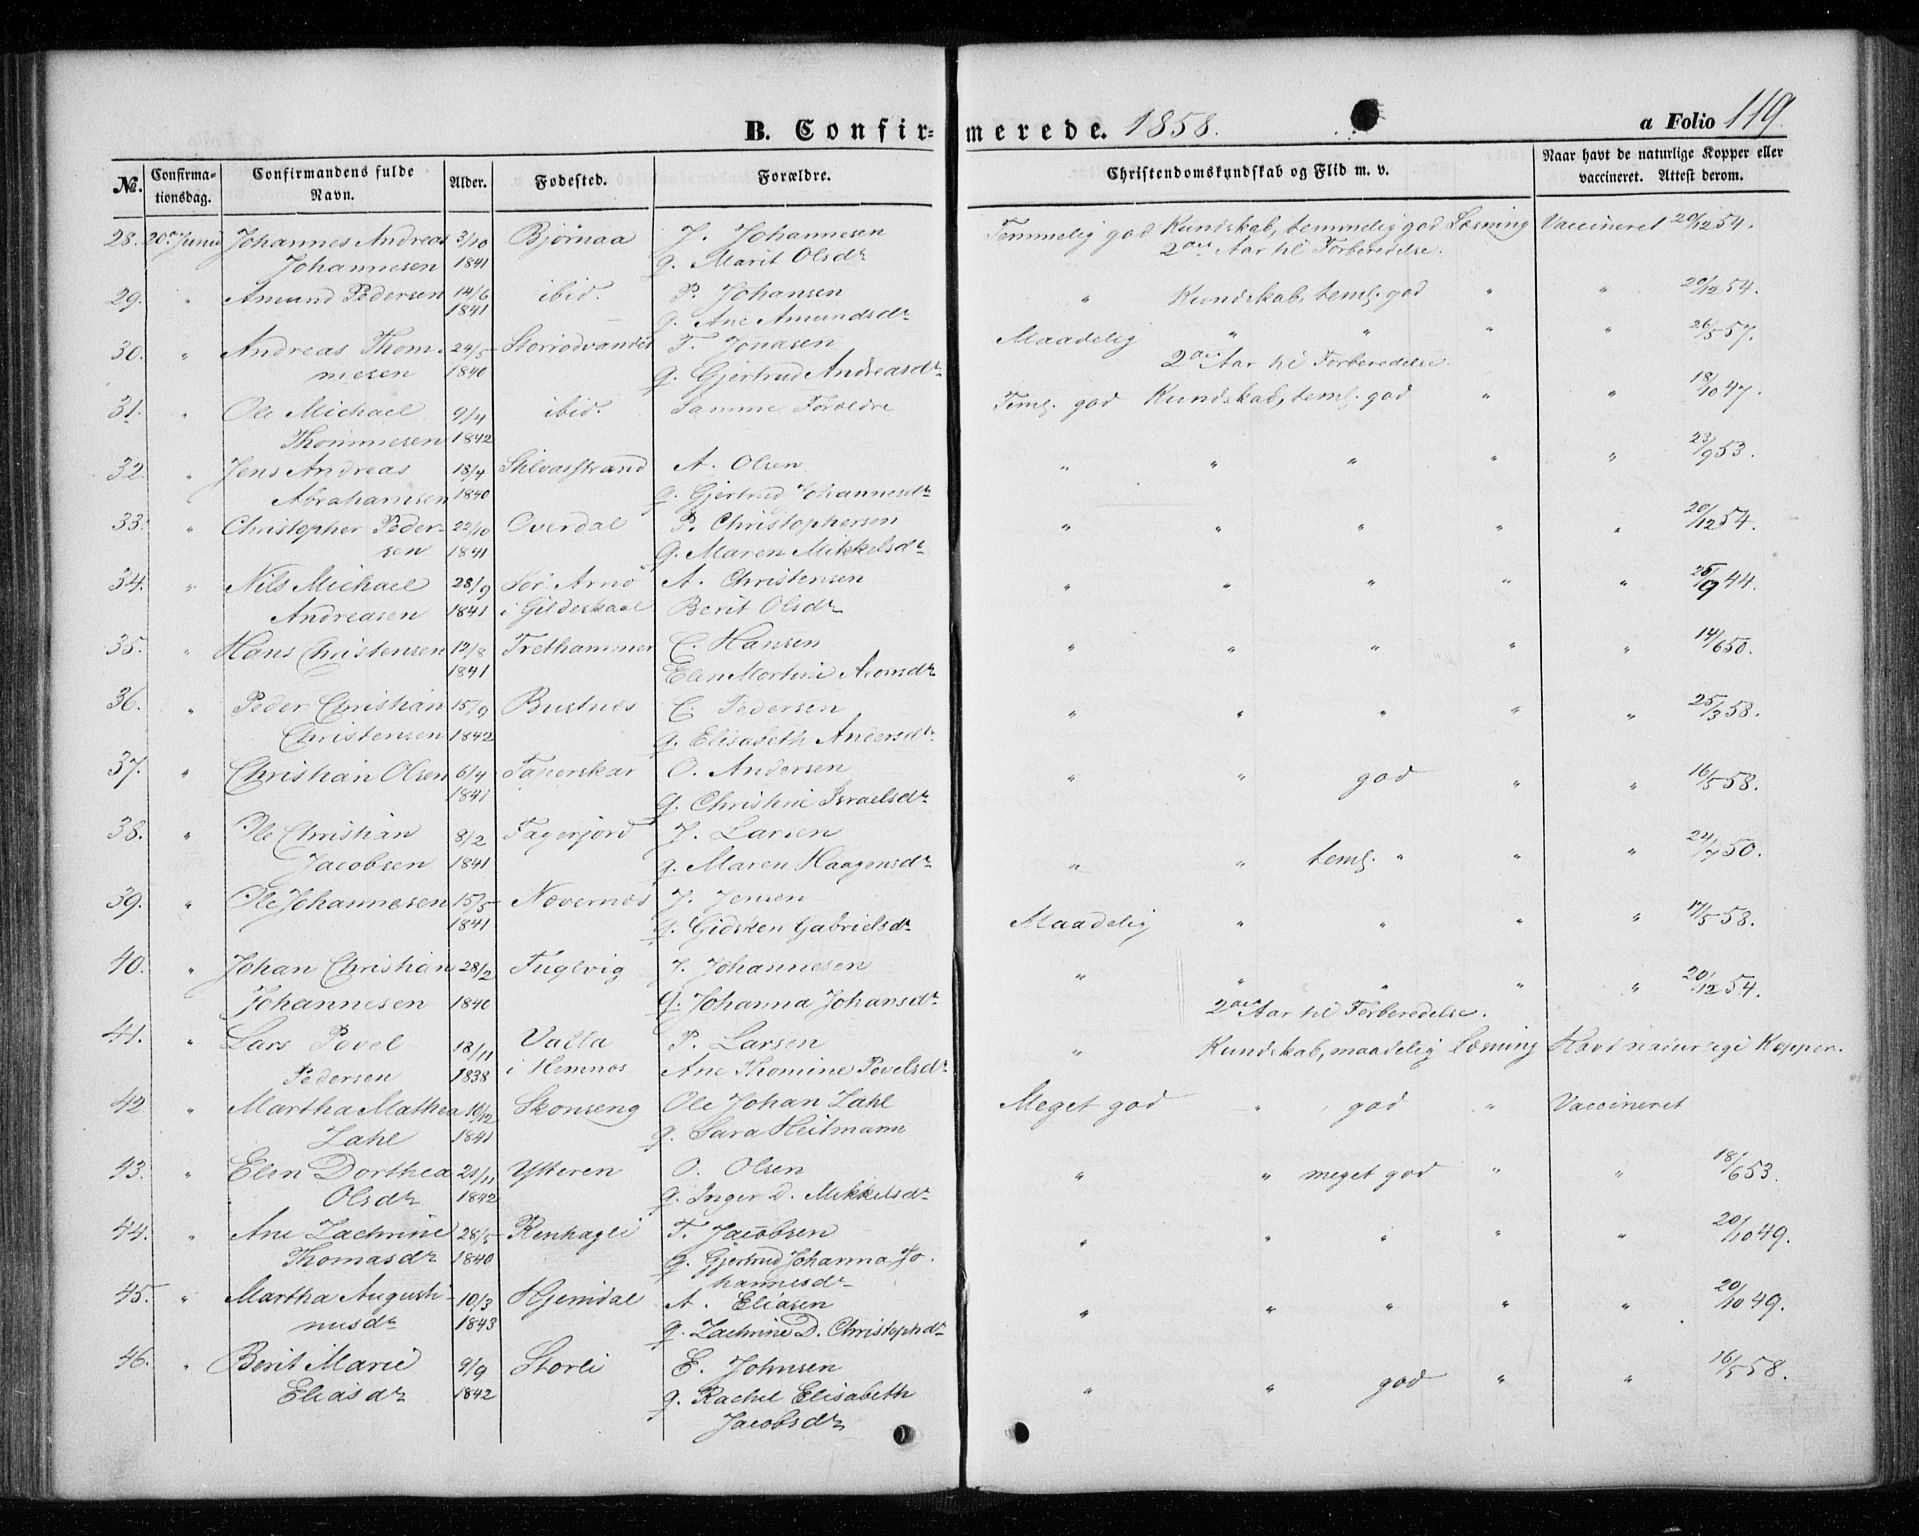 B. Confirmerede. 1858. a Folio 119.
№. Confirmationsdag. Confirmandens fulde Navn. Alder. Fødested. Forældre. Christendomskundskab og Flid m. v. Naar havt de naturlige Kopper eller vaccineret. Attest derom.
28. 20de Juni Johannes Andreas 3/10 Bjørnaa J. Johannesen Temmelig god Kundskab, temmelig god Læsning Vaccineret 20/12 54.
Johannesen 1841 g. Marit Olsdr 2det Aar til Forberedelse.
29. " Amund Pedersen 14/6 ibid. P. Johansen " Kundskab, teml. god " " 20/12 54.
1841 g. Ane Amundsdr
30. " Andreas Thom- 24/5 Storrødvandet T. Jonasen Maadelig " " " " 26/5 57.
mesen 1840 g. Gjertrud Andreasdr 2det Aar til Forberedelse.
31. " Ole Michael 9/4 ibid. Samme Forældre Teml. god Kundskab, teml. god " " 18/10 47.
Thommesen 1842
32. " Jens Andreas 18/4 Stilvasstrand A. Olsen " " " " " 23/9 53.
Abrahamsen 1840 g. Gjertrud Johannesdr
33. " Christopher Peder- 22/10 Overdal P. Christophersen " " " " " 20/12 54.
sen 1841 g. Maren Mikkelsdr
34. " Nils Michael 28/9 Sør Arnø A. Christensen " " " " " 44.
Andreasen 1841 i Gildeskaal Berit Olsdr
35. " Hans Christensen 12/8 Trethammer C. Hansen " " " " " 14/6 50.
1841 Elen Martine Aronsdr
36. " Peder Christian 15/9 Bustnæs C. Pedersen " " " " " 25/3 58.
Christensen 1842 g. Elisabeth Andersdr
37. " Christian Olsen 6/4 O. Andersen " " god " " 16/5 58.
1841 g. Christine Israelsdr
38. " Ole Christian 8/2 Fagerjord J. Larsen " " teml. " " " 24/7 50.
Jacobsen 1841 g. Maren Haagensdr
39. " Ole Johannesen 15/5 Nævernæs J. Jensen Maadelig " " " " 17/5 58.
1841 g. Gidsken Gabrielsdr
40. " Johan Christian 28/2 Fuglvig J. Johannesen " " " " " 20/12 54.
Johannesen 1840 g. Johanna Johansdr 2det Aar til Forberedelse.
41. " Lars Povel 18/11 Valla P. Larsen " Kundskab, maadelig Læsning Havt naturlige Kopper.
Pedersen 1838 i Hemnæs Ane Thomine Povelsdr
42 " Martha Mathea 10/12 Skonseng Ole Johan Zahl Meget god " god " Vaccineret
Zahl 1841 g. Sara Heitmann
43. " Elen Dorthea 21/11 Ytteren O. Olsen " " meget god " " 18/6 53.
Olsdr 1842 g. Inger D. Mikkelsdr
44. " Ane Zachrine 28/5 Renhagli T. Jacobsen " " " " " 20/10 49.
Thomasdr 1840 g. Gjertrud Johanna Jo-
hannesdr
45. " Martha Augusti- 10/3 Hjemdal A. Eliasen " " " " " 20/10 49.
nusdr 1843 g. Zachrine D. Christophdr
46. " Berit Marie 9/9 Storli E. Johnsen " " god " " 16/5 58.
Eliasdr 1842 g. Rachel Elisabeth
Jacobsdr